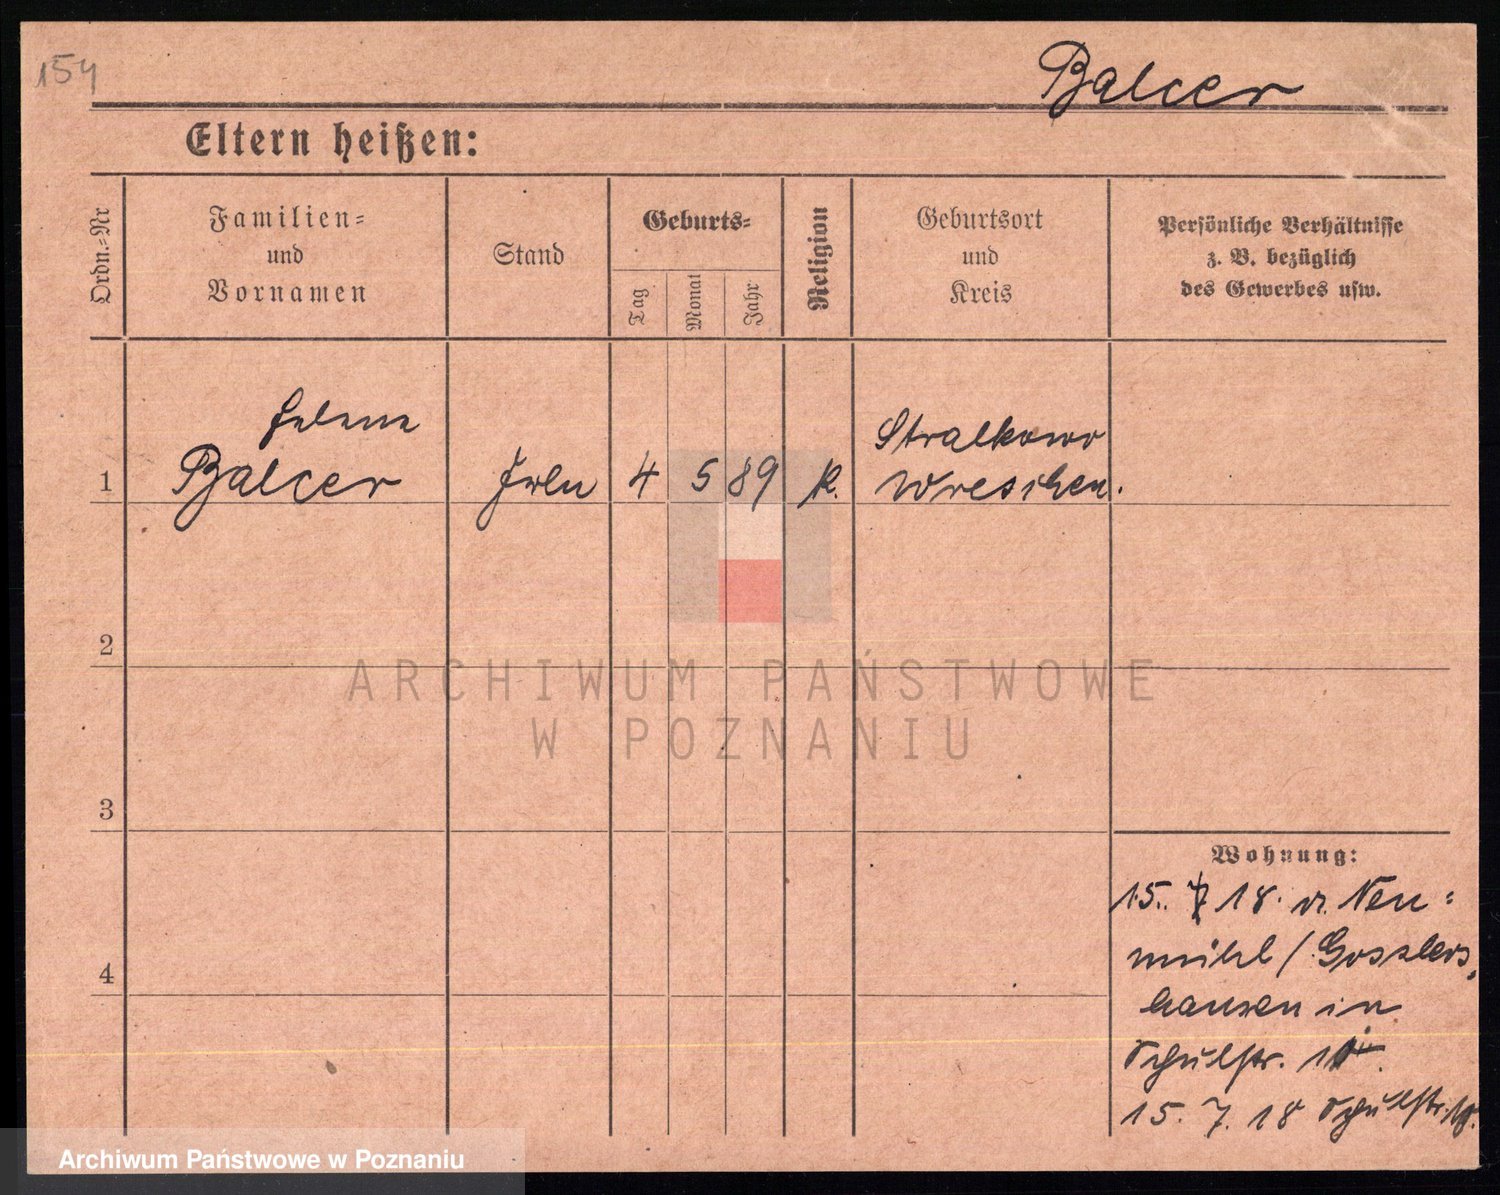 154
Balcer
Eltern heißen:
Ordn.-Nr
Familien-
und
Vornamen
Stand
Geburts-
Tag
Monat
Jahr
Religion
Geburtsort
und
Kreis
Persönliche Verhältnisse
z. B. bezüglich
des Gewerbes usw.
Helene
1 Balcer Frln 4 5 89 k. Stralkowo
Wreschen.
2
3
4
ARCHIWUM PAŃSTWOWE
W POZNANIU
Wohnung:
15. 7 18. v. Neu-
mühl / Gosslers-
hausen in
Schulstr.
15. 7. 18 Schulstr.
Archiwum Państwowe w Poznaniu